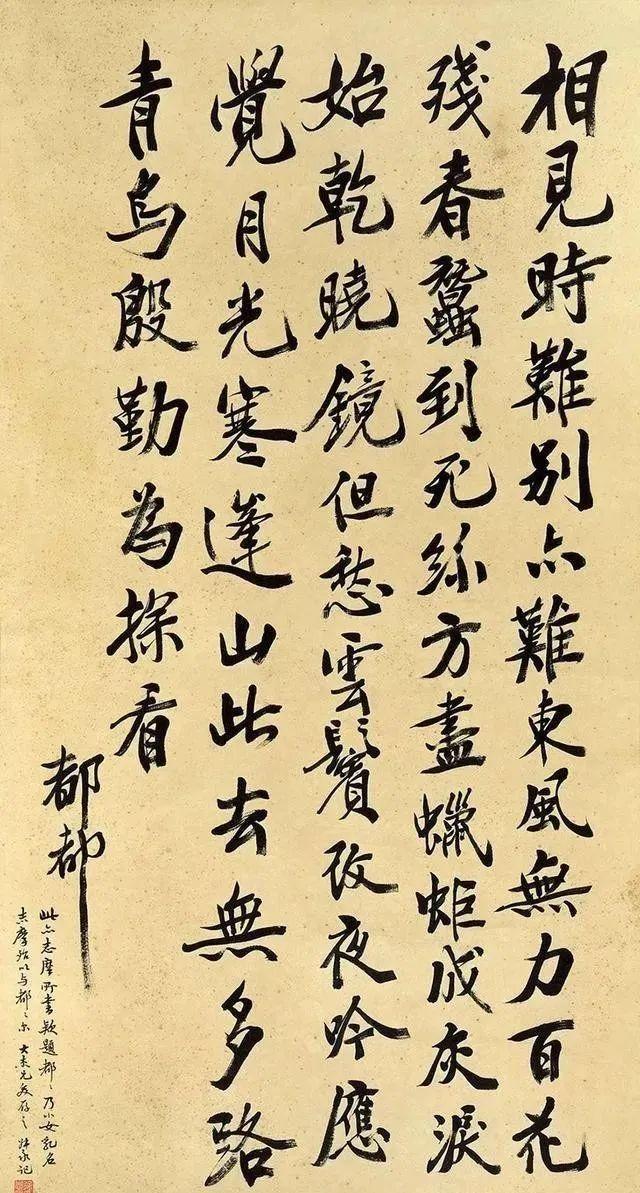 相見時難別亦難東風無力百花
殘春蠶到死絲方盡蠟炬成灰淚
始乾曉鏡但愁雲鬢改夜吟應
覺月光寒蓬山此去無多路
青鳥殷勤為探看
都都
此亦志摩所書款題都々乃小女乳名
志摩殆以与都々尔 大杰兄存之 记